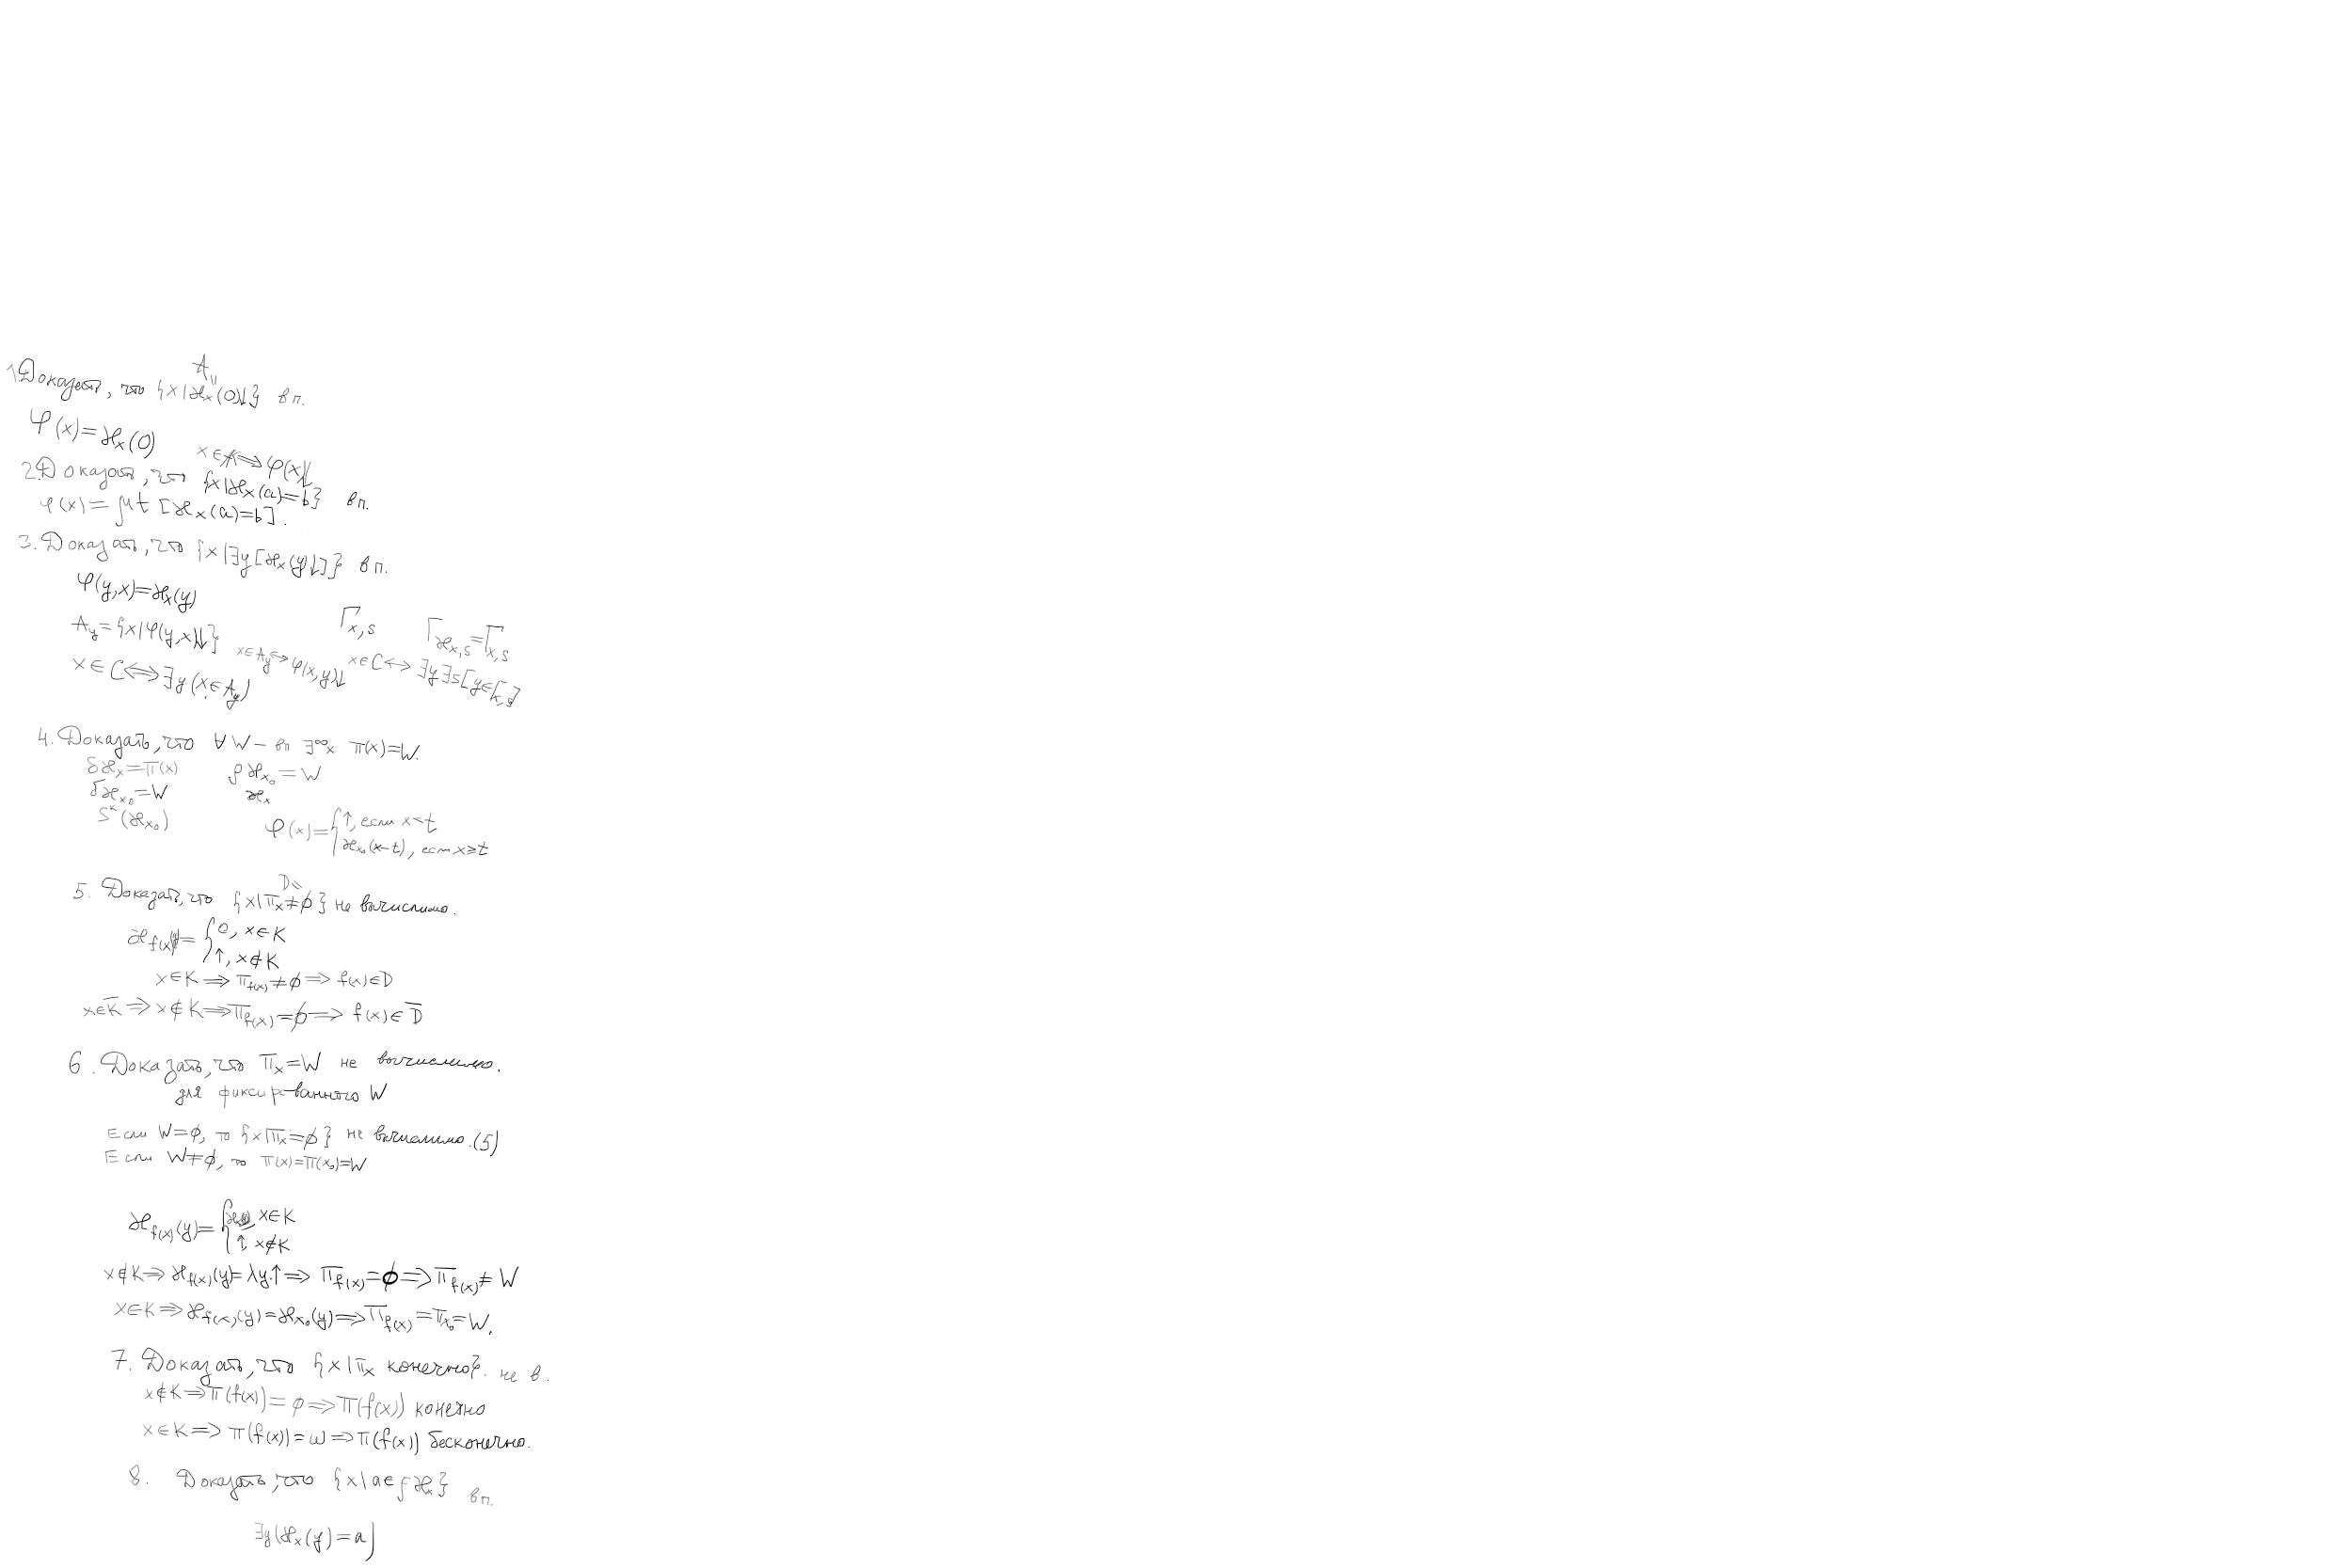 A
1. Доказать, что {x | ϰₓ(0)↓} вп.
φ(x) = ϰₓ(0) x ∈ A ⟺ φ(x)↓
2. Доказать, что {x | ϰₓ(a) = b} вп.
φ(x) = μt [ϰₓ(a) = b].
3. Доказать, что {x | ∃y [ϰₓ(y)↓]} вп.
φ(y, x) = ϰₓ(y)
Γ_{x,s} Γ_{ϰₓ,s} = Γ_{x,s}
A_y = {x | φ(y, x)↓}
x ∈ A_y ⟷ φ(x, y)↓ x ∈ C ⟷ ∃y ∃s [y ∈ Γ_{x,s}]
x ∈ C ⟺ ∃y (x ∈ A_y)
4. Доказать, что ∀ W – вп ∃^∞ x π(x) = W.
δϰₓ = π(x) ρϰ_{x₀} = W
δϰ_{x₀} = W ϰₓ
S^k(ϰ_{x₀})
φ(x) = { ↑, если x < t
ϰ_{x₀}(x–t), если x ⩾ t
D
5. Доказать, что {x | πₓ ≠ ∅} не вычислимо.
ϰ_{f(x)}(y) = { 0, x ∈ K
↑, x ∉ K
x ∈ K ⟹ π_{f(x)} ≠ ∅ ⟹ f(x) ∈ D
x ∈ K̅ ⟹ x ∉ K ⟹ π_{f(x)} = ∅ ⟹ f(x) ∈ D̅
6. Доказать, что πₓ = W не вычислимо.
для фиксированного W
Если W = ∅, то {x | πₓ = ∅} не вычислимо. (5)
Если W ≠ ∅, то π(x) = π(x₀) = W
ϰ_{f(x)}(y) = { x ∈ K
↑, x ∉ K
x ∉ K ⟹ ϰ_{f(x)}(y) = λy.↑ ⟹ π_{f(x)} = ∅ ⟹ π_{f(x)} ≠ W
x ∈ K ⟹ ϰ_{f(x)}(y) = ϰ_{x₀}(y) ⟹ π_{f(x)} = π_{x₀} = W.
7. Доказать, что {x | πₓ конечно}. не в.
x ∉ K ⟹ π(f(x)) = ∅ ⟹ π(f(x)) конечно
x ∈ K ⟹ π(f(x)) = ω ⟹ π(f(x)) бесконечно.
8. Доказать, что {x | a ∈ ρϰₓ} вп.
∃y (ϰₓ(y) = a)